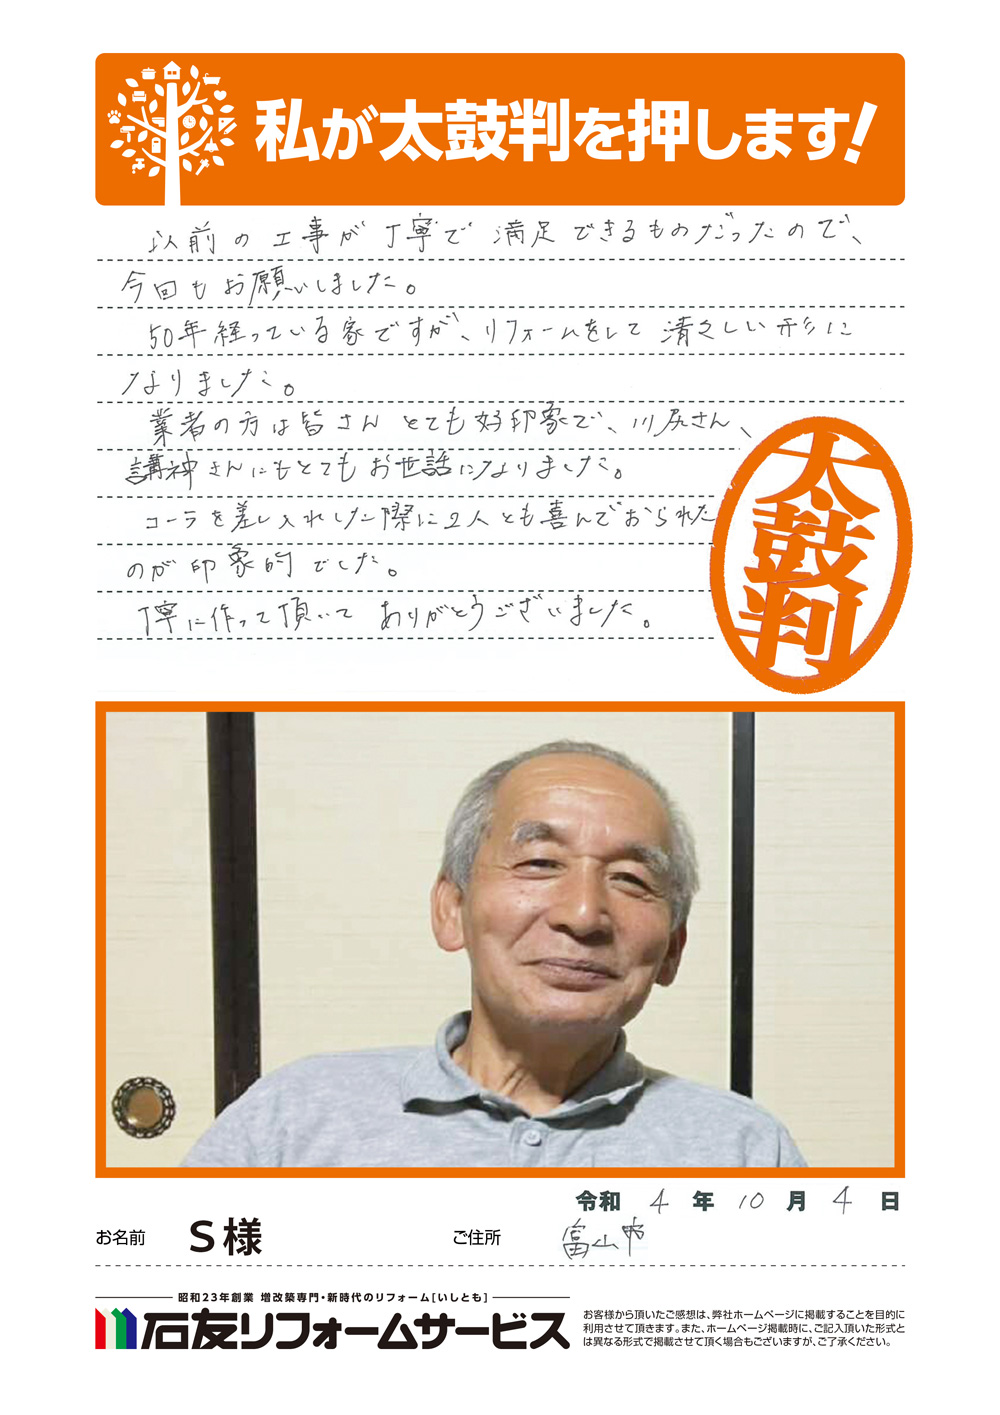 私が太鼓判を押します!
以前の工事が丁寧で満足できるものだったので、
今回もお願いしました。
50年経っている家ですが、リフォームをして清々しい形に
なりました。
業者の方は皆さんとても好印象で、川尻さん、
講神さんにもとてもお世話になりました。
コーラを差し入れした際に2人とも喜んでおられた
のが印象的でした。
丁寧に作って頂いてありがとうございました。
太鼓判
令和 4 年 10 月 4 日
お名前 S様 ご住所 富山市
昭和23年創業 増改築専門・新時代のリフォーム[いしとも]
石友リフォームサービス
お客様から頂いたご感想は、弊社ホームページに掲載することを目的に
利用させて頂きます。また、ホームページ掲載時に、ご記入頂いた形式と
は異なる形式で掲載させて頂く場合もございますが、ご了承ください。